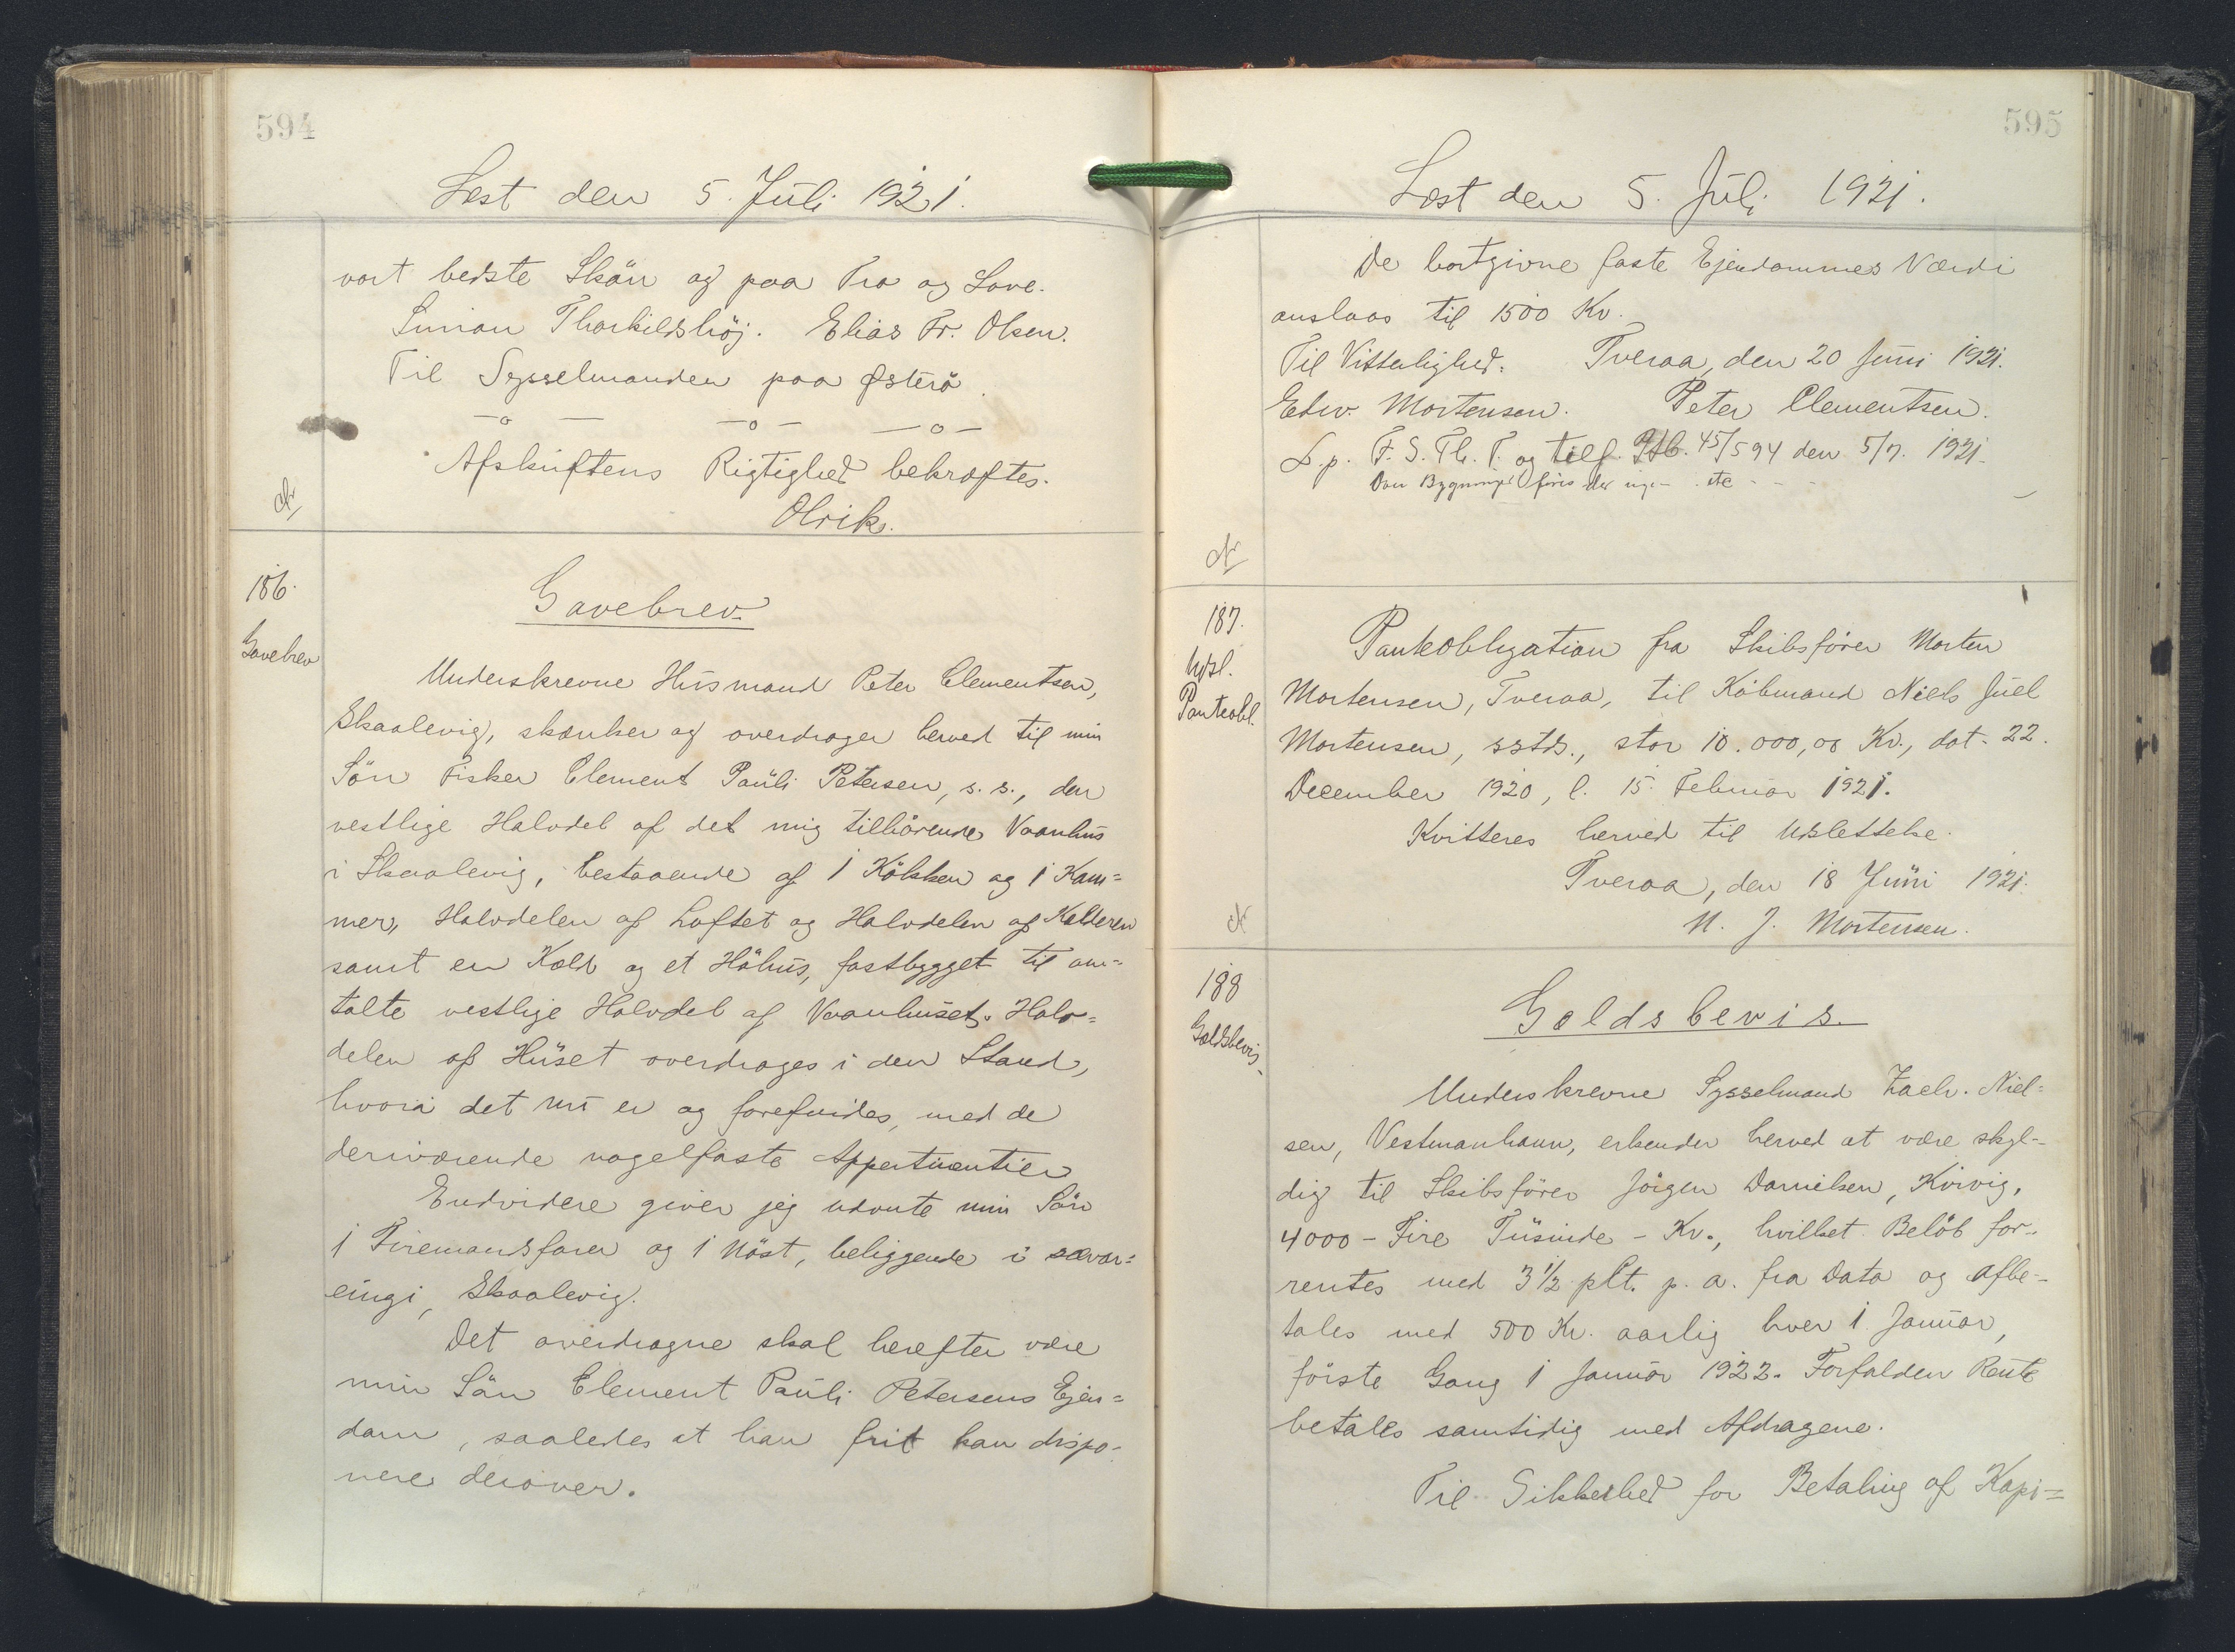 594
Læst den 5. Juli 1921.
vort bedste Skön og paa Tro og Love.
Simon Thorkilshöj. Elias Fr. Olsen.
Til Sysselmanden paa Österö.
—o— —o— —o—
Afskriftens Rigtighed bekræftes.
Olrik.
186.
Gavebrev
Gavebrev.
Underskrevne Husmand Peter Clementsen,
Skaalevig, skænker og overdrager herved til min
Sön Fisker Clement Pauli Petersen, s. s., den
vestlige Halvdel af det mig tilhörende Vaanhus
i Skaalevig, bestaaende af 1 Kökken og 1 Kam=
mer, Halvdelen af Loftet og Halvdelen af Kælderen
samt en Kold og et Höhus, fastbygget til om=
talte vestlige Halvdel af Vaanhuset. Halv=
delen af Huset overdrages i den Stand,
hvori det nu er og forefindes, med de
derivärende nagelfaste Appertinentier
Endvidere giver jeg udnte min Sön
1 Firemandsfarer og 1 Nöst, beliggende i sævar=
eingi, Skaalevig.
Det overdragne skal herefter være
min Sön Clement Pauli Petersens Ejen=
dom, saaledes at han frit kan dispo=
nere derover.
595
Læst den 5. Juli 1921.
De bortgivne faste Ejendommes Værdi
anslaas til 1500 Kr.
Til Vitterlighed. Tveraa, den 20 Juni 1921.
Edw. Mortensen. Peter Clementsen.
L. p. F. S. Th. T. og tilf. Ptb. 45/594 den 5/7. 1921.
Om Bygninger föres der etc
187.
Udsl.
Panteobl.
Panteobligation fra Skibsförer Morten
Mortensen, Tveraa, til Köbmand Niels Juel
Mortensen, sstds., stor 10.000,00 Kr., dat. 22.
December 1920, l. 15. Februar 1921.
Kvitteres herved til Udslettelse.
Tveraa, den 18 Juni 1921.
N. J. Mortensen.
188
Gældsbevis
Gældsbevis.
Underskrevne Sysselmand Zach. Niel=
sen, Vestmanhavn, erkender herved at være skyl=
dig til Skibsförer Jörgen Danielsen, Kvivig,
4000 – Fire Tusinde – Kr., hvilket Belöb for=
rentes med 3½ pCt. p. a. fra Dato og afbe=
tales med 500 Kr. aarlig hver 1 Januar,
förste Gang 1 Januar 1922. Forfalden Rente
betales samtidig med Afdragene.
Til Sikkerhed for Betaling af Kapi=